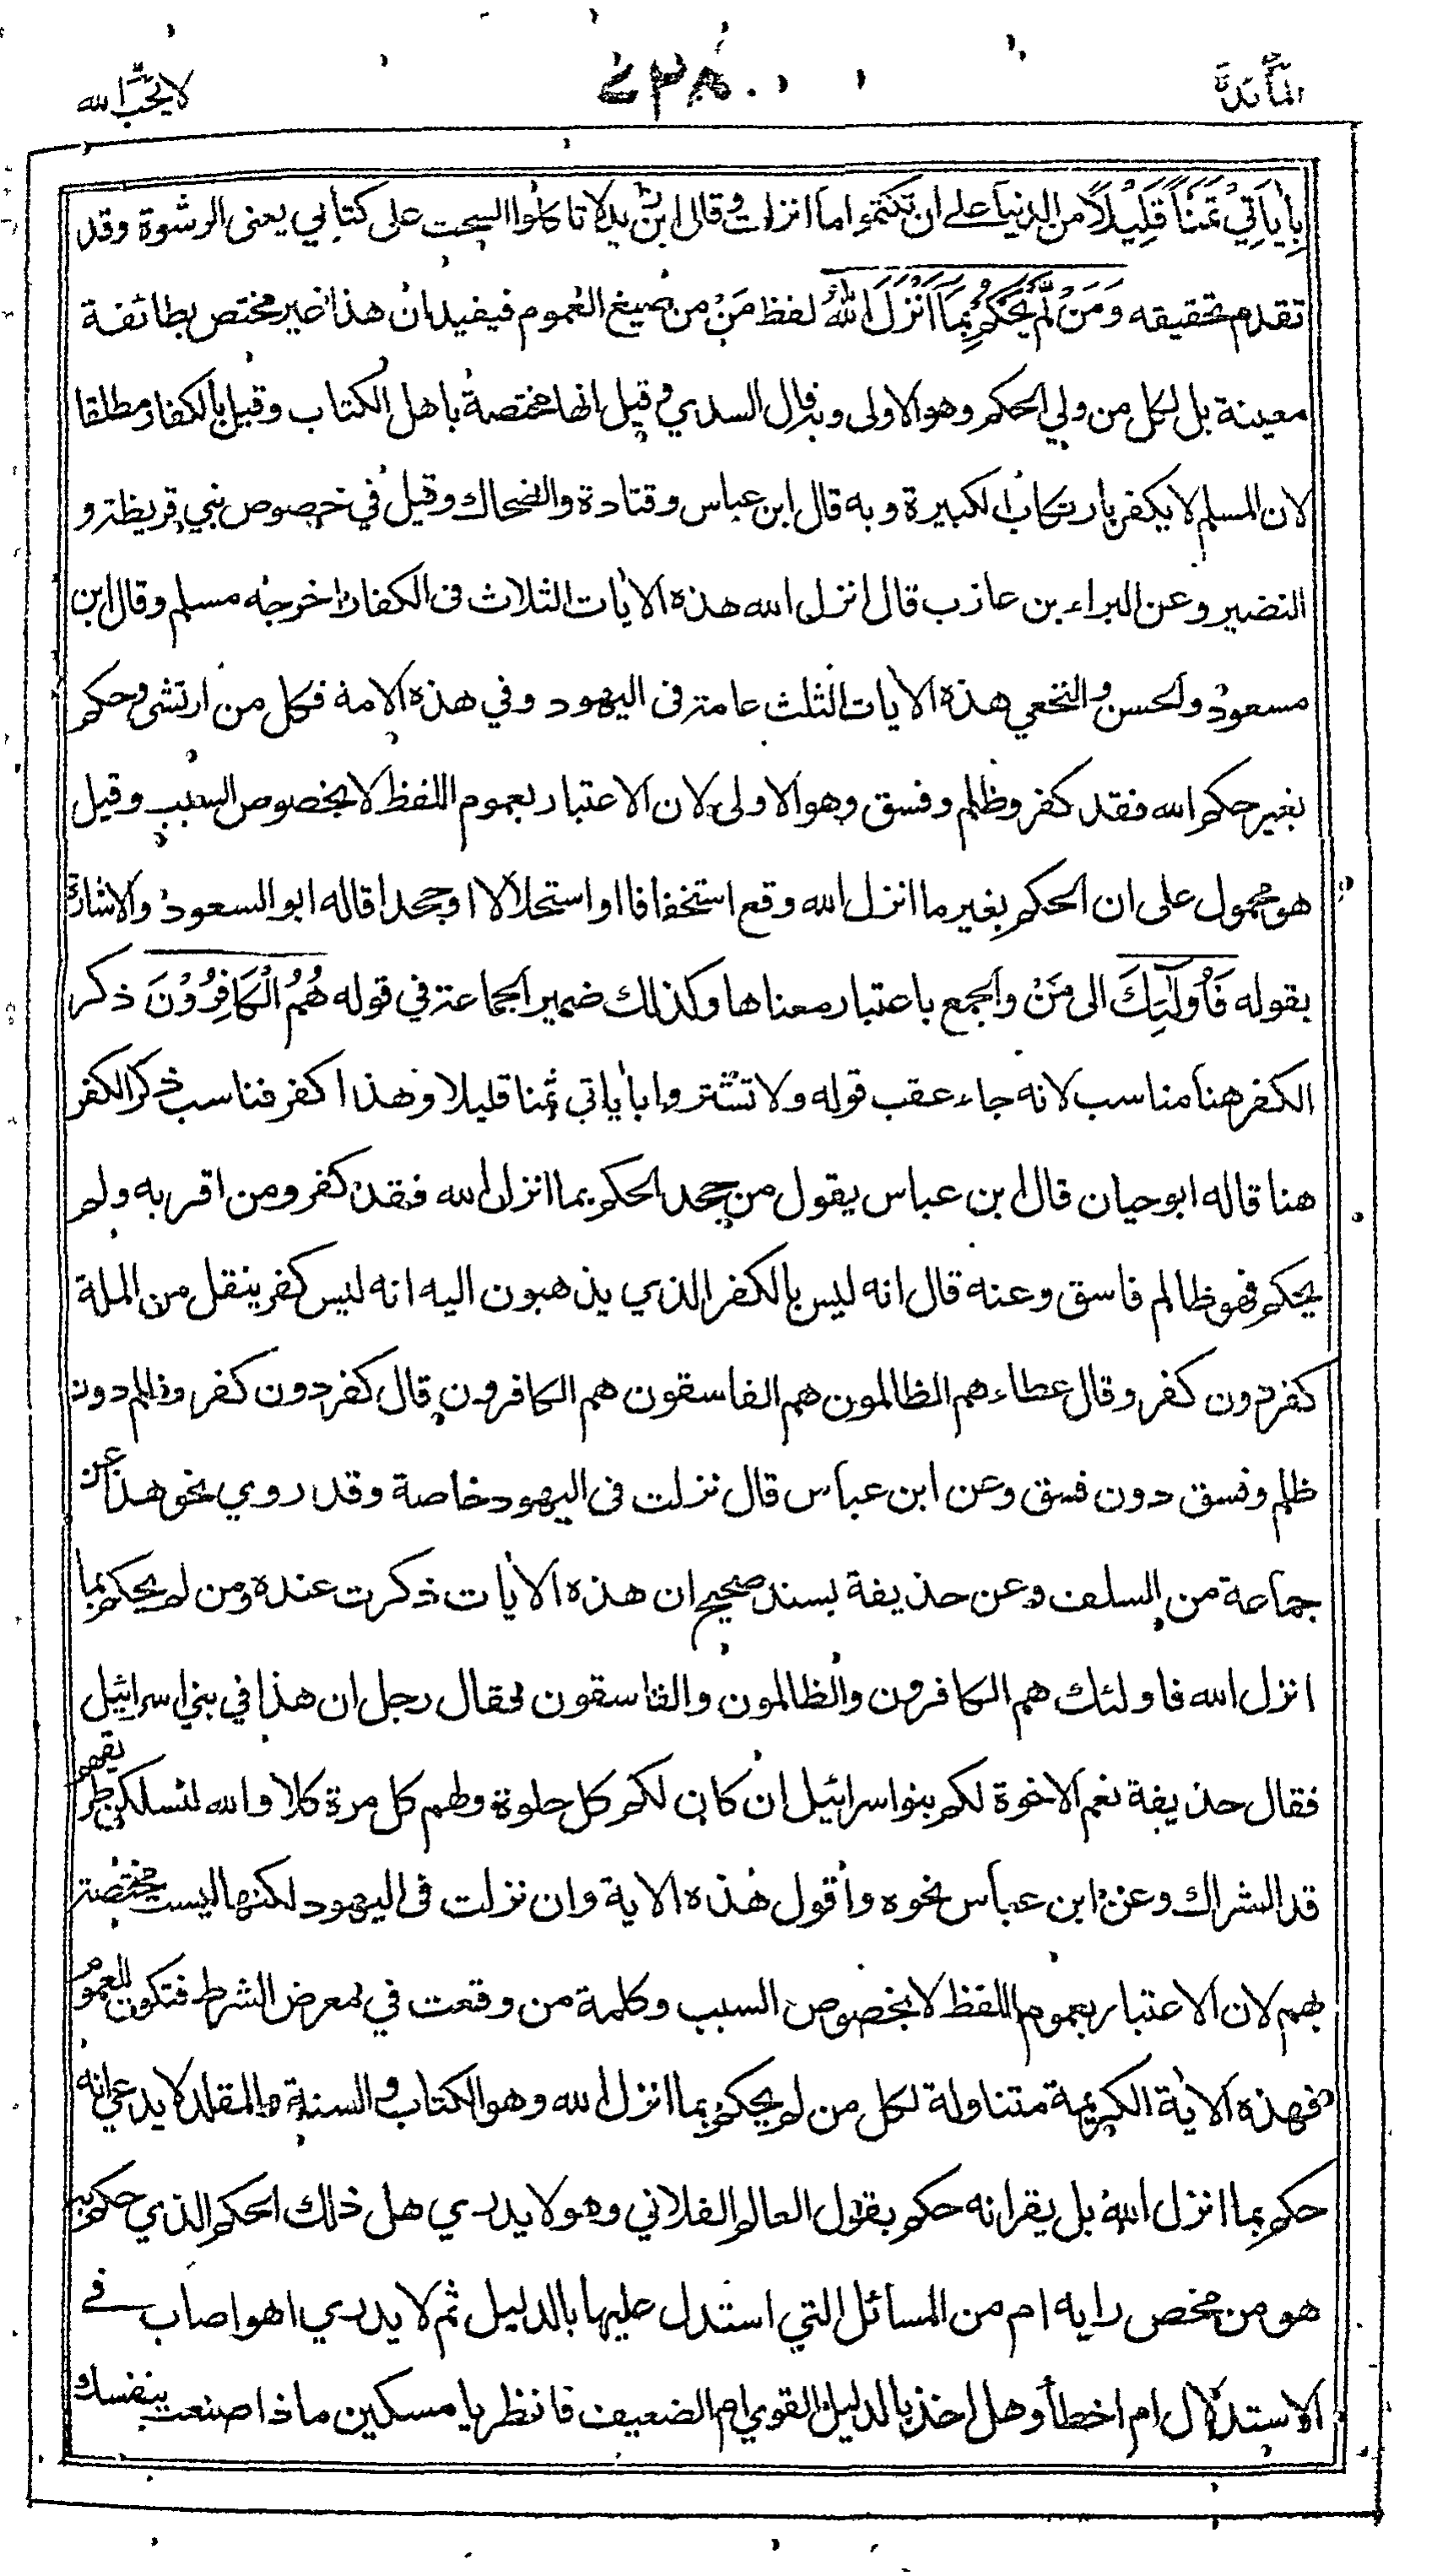 المآئدة
٢٣٨
لا يحب الله
بِاٰيَاتِيْ ثَمَنًا قَلِيْلًا من الدنيا على ان تكتموا ما انزلت وقال ابن زيد لا تاكلوا السحت على كتابي يعنى الرشوة وقد
تقدم تحقيقه وَمَنْ لَّمْ يَحْكُمْ بِمَآ اَنْزَلَ اللّٰهُ لفظ مَنْ من صيغ العموم فيفيد ان هذا غير مختص بطائفة
معينة بل لكل من ولي الحكم وهو الاولى وبه قال السدي وقيل انها مختصة باهل الكتاب وقيل بالكفار مطلقا
لان المسلم لا يكفر بارتكاب الكبيرة وبه قال ابن عباس وقتادة والضحاك وقيل في خصوص بني قريظة و
النضير وعن البراء بن عازب قال انزل الله هذه الاٰيات الثلاث فى الكفار اخرجه مسلم وقال ابن
مسعود والحسن والنخعي هذه الاٰيات الثلث عامة فى اليهود وفي هذه الامة فكل من ارتشى وحكم
بغير حكم الله فقد كفر وظلم وفسق وهو الاولى لان الاعتبار بعموم اللفظ لا بخصوص السبب وقيل
هو محمول على ان الحكم بغير ما انزل الله وقع استخفافا او استحلالا او جحدا قاله ابو السعود والاشارة
بقوله فَاُولٰٓئِكَ الى مَنْ والجمع باعتبار معناها وكذلك ضمير الجماعة في قوله هُمُ الْكَافِرُوْنَ ذكر
الكفر هنا مناسب لانه جاء عقب قوله ولا تشتروا باٰياتي ثمنا قليلا وهذا كفر فناسب ذكر الكفر
هنا قاله ابو حيان قال ابن عباس يقول من جحد الحكم بما انزل الله فقد كفر ومن اقر به ولم
يحكم فهو ظالم فاسق وعنه قال انه ليس بالكفر الذي يذهبون اليه انه ليس كفر ينقل من الملة
كفر دون كفر وقال عطاء هم الظالمون هم الفاسقون هم الكافرون قال كفر دون كفر وظلم دون
ظلم وفسق دون فسق وعن ابن عباس قال نزلت فى اليهود خاصة وقد روي نحو هذا عن
جماعة من السلف وعن حذيفة بسند صحيح ان هذه الاٰيات ذكرت عنده ومن لم يحكم بما
انزل الله فاولئك هم الكافرون والظالمون والفاسقون فقال رجل ان هذا في بني اسرائيل
فقال حذيفة نعم الاخوة لكم بنو اسرائيل ان كان لكم كل حلوة ولهم كل مرة كلا والله لتسلكن طريقهم
قد الشراك وعن ابن عباس نحوه واقول هذه الاية وان نزلت فى اليهود لكنها ليست مختصة
بهم لان الاعتبار بعموم اللفظ لا بخصوص السبب وكلمة من وقعت في معرض الشرط فتكون للعموم
فهذه الاٰية الكريمة متناولة لكل من لم يحكم بما انزل الله وهو الكتاب والسنة والمقلد لا يدعي انه
حكم بما انزل الله بل يقر انه حكم بقول العالم الفلاني وهو لا يدري هل ذلك الحكم الذي حكم به
هو من محض رايه ام من المسائل التي استدل عليها بالدليل ثم لا يدري اهو اصاب فے
الاستدلال ام اخطأ وهل اخذ بالدليل القوي ام الضعيف فانظر يا مسكين ماذا صنعت بنفسك